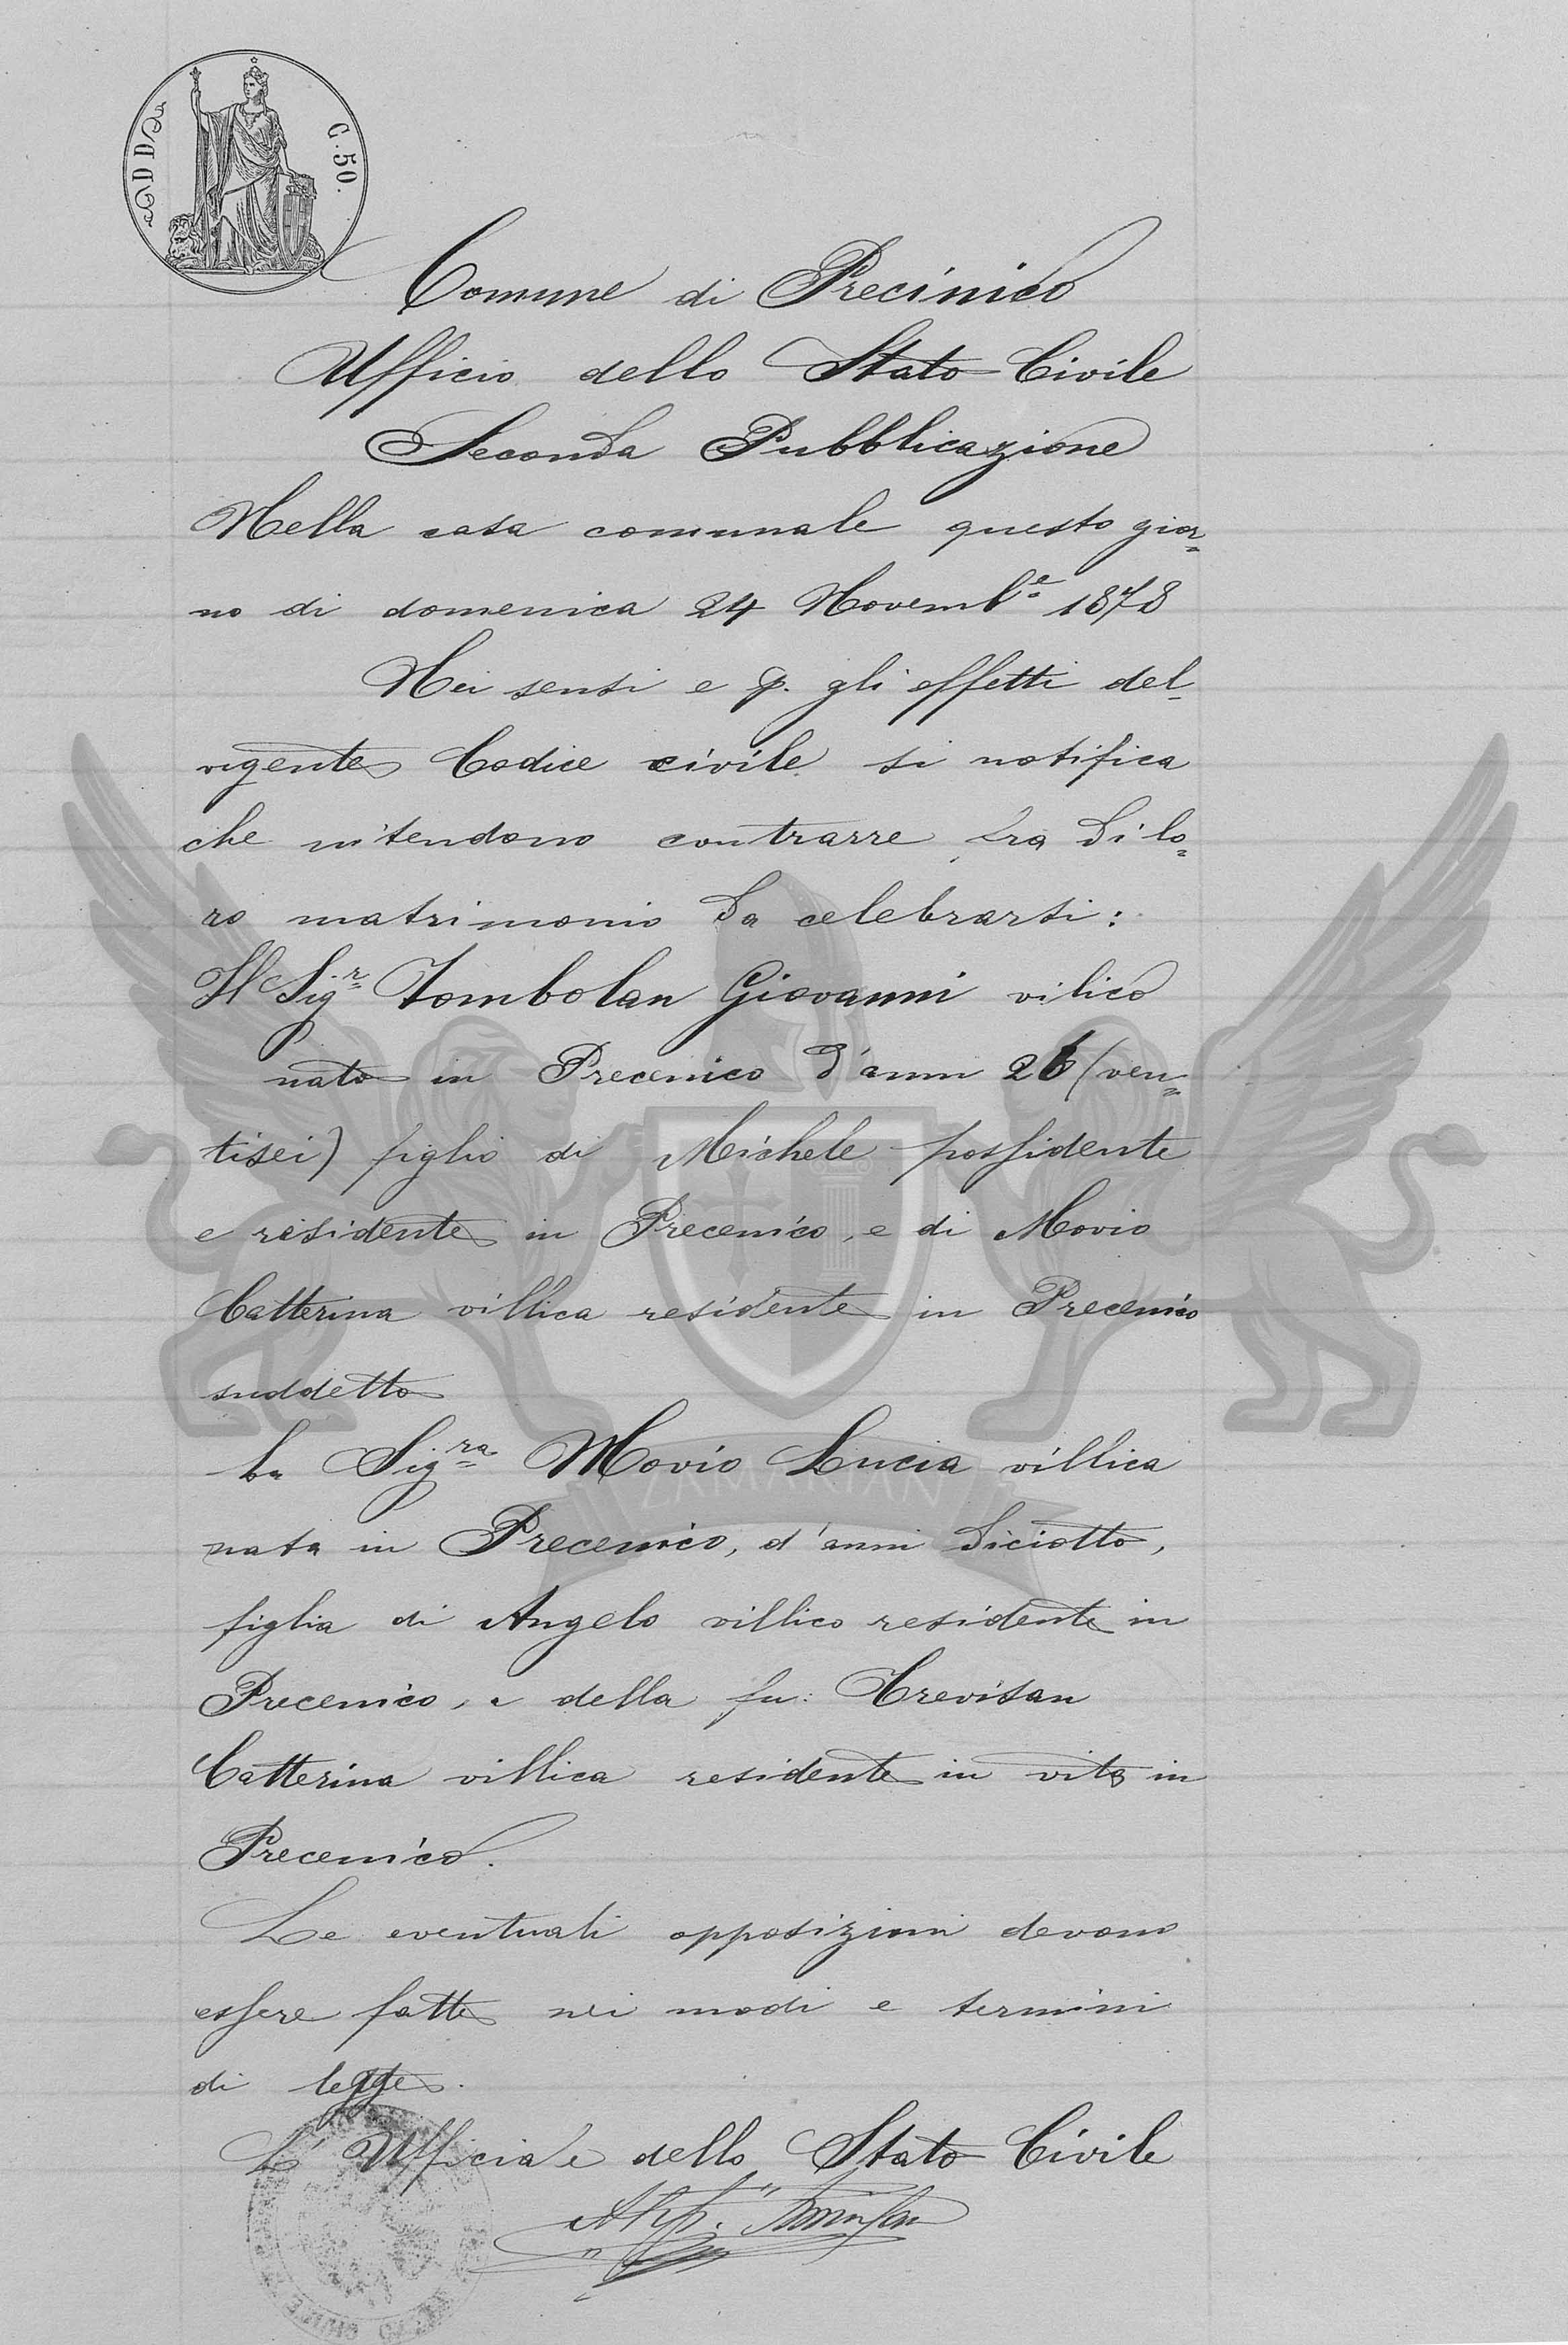 C. 50.
Comune di Precinico
Ufficio dello Stato Civile
Seconda Pubblicazione
Nella casa comunale questo gior=
no di domenica 24 Novemb.e 1878
Nei sensi e p. gli effetti del
vigente Codice civile si notifica
che intendono contrarre fra di lo=
ro matrimonio da celebrarsi:
Il Sigr Tombolan Giovanni vilico
nato in Precenico d'anni 26 (ven=
tisei) figlio di Michele possidente
e residente in Precenico, e di Movio
Catterina villica residente in Precenico
suddetto
La Sigra Movio Lucia villica
nata in Precenico, d'anni diciotto,
figlia di Angelo villico residente in
Precenico, e della fu: Trevisan
Catterina villica residente in vita in
Precenico.
Le eventuali opposizioni devono
essere fatte nei modi e termini
di legge.
L'Ufficiale dello Stato Civile
ZAMARIAN